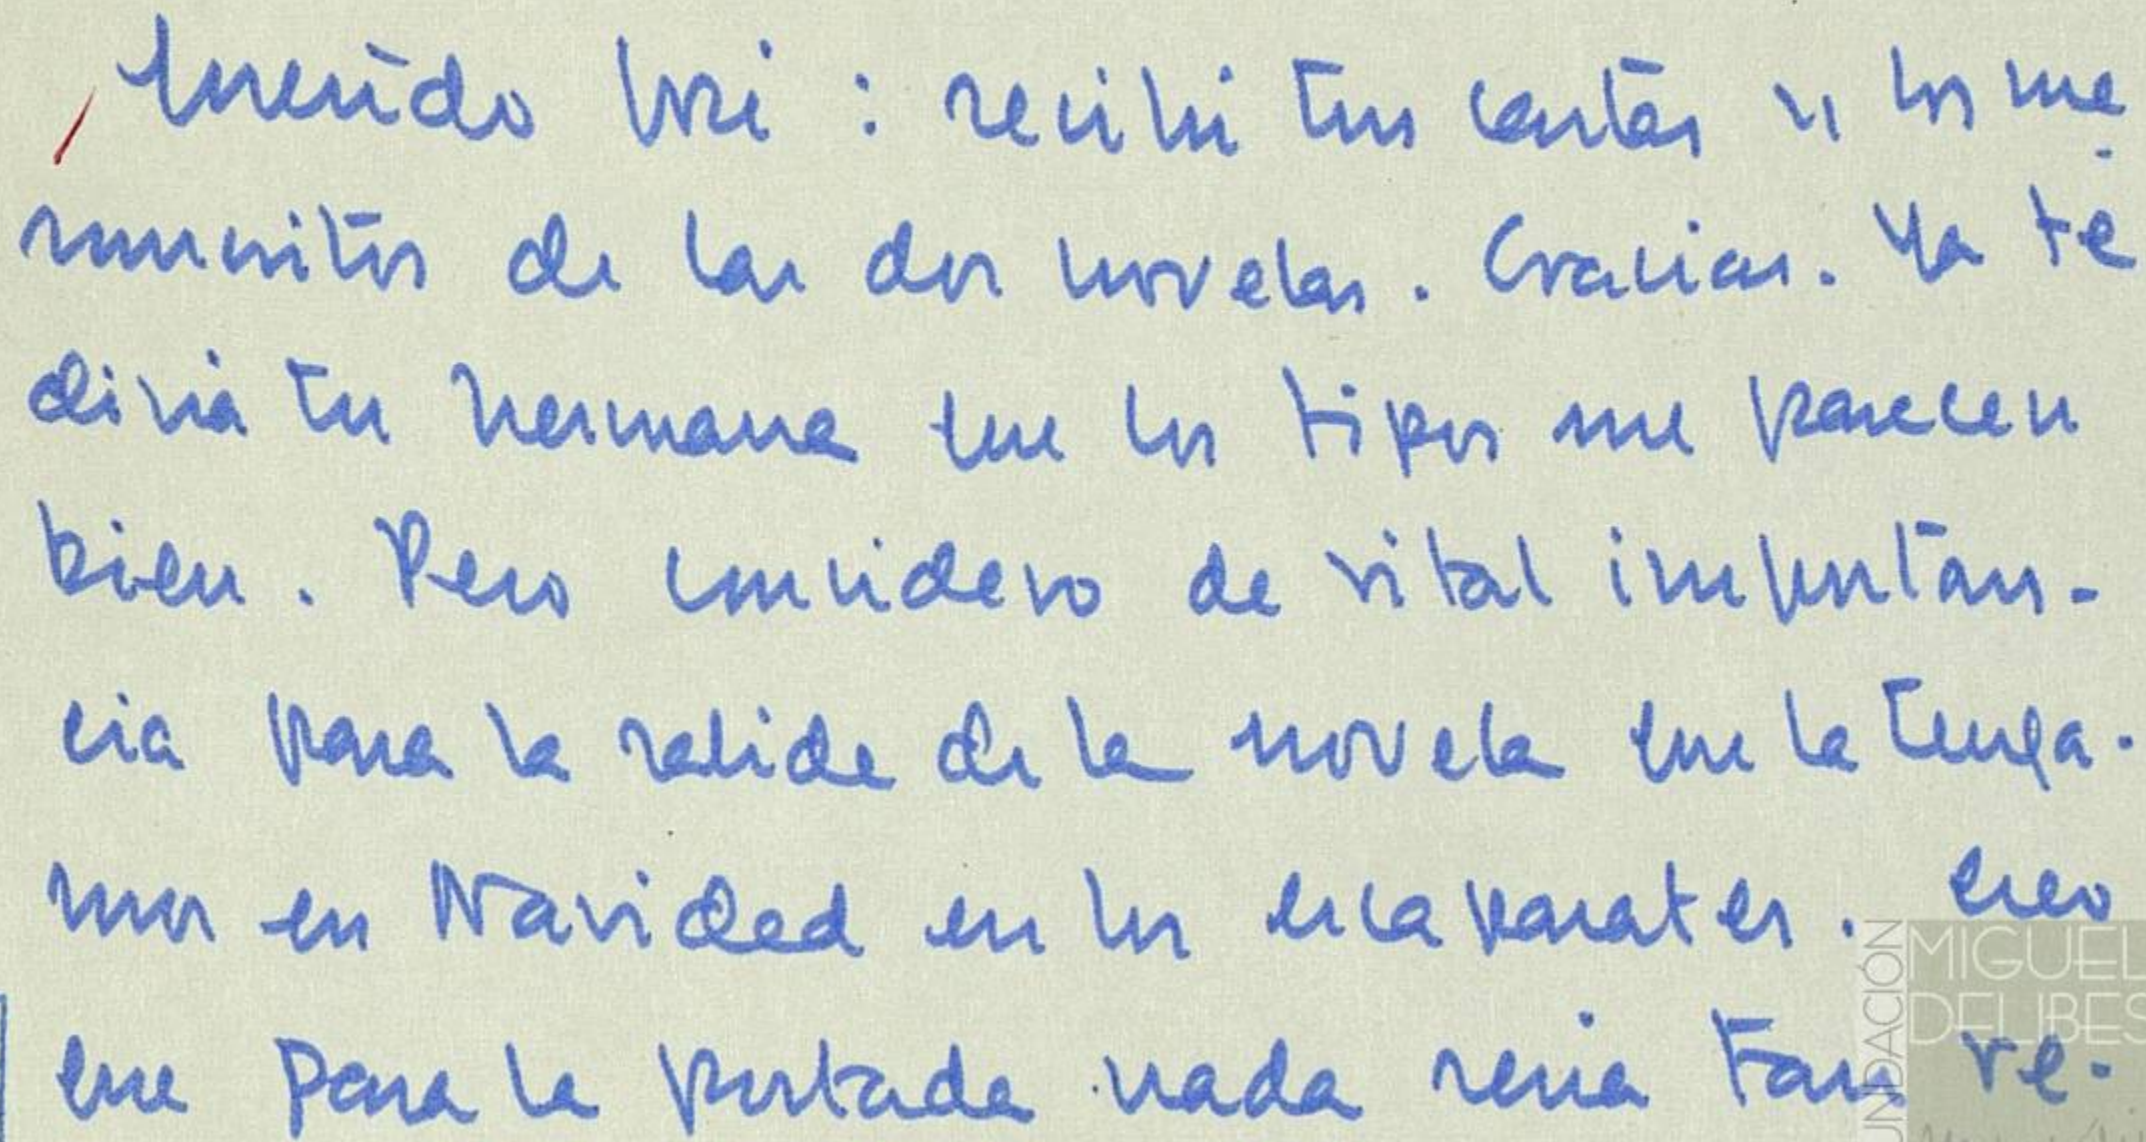 Querido José: recibí tus cartas y los me-
canuscritos de las dos novelas. Gracias. Ya te
diría tu hermana que los tipos me parecen
bien. Pero considero de vital importan-
cia para la salida de la novela que la tenga-
mos en Navidad en los escaparates. Creo
que para la portada nada sería tan re-
FUNDACIÓN
MIGUEL
DELIBES